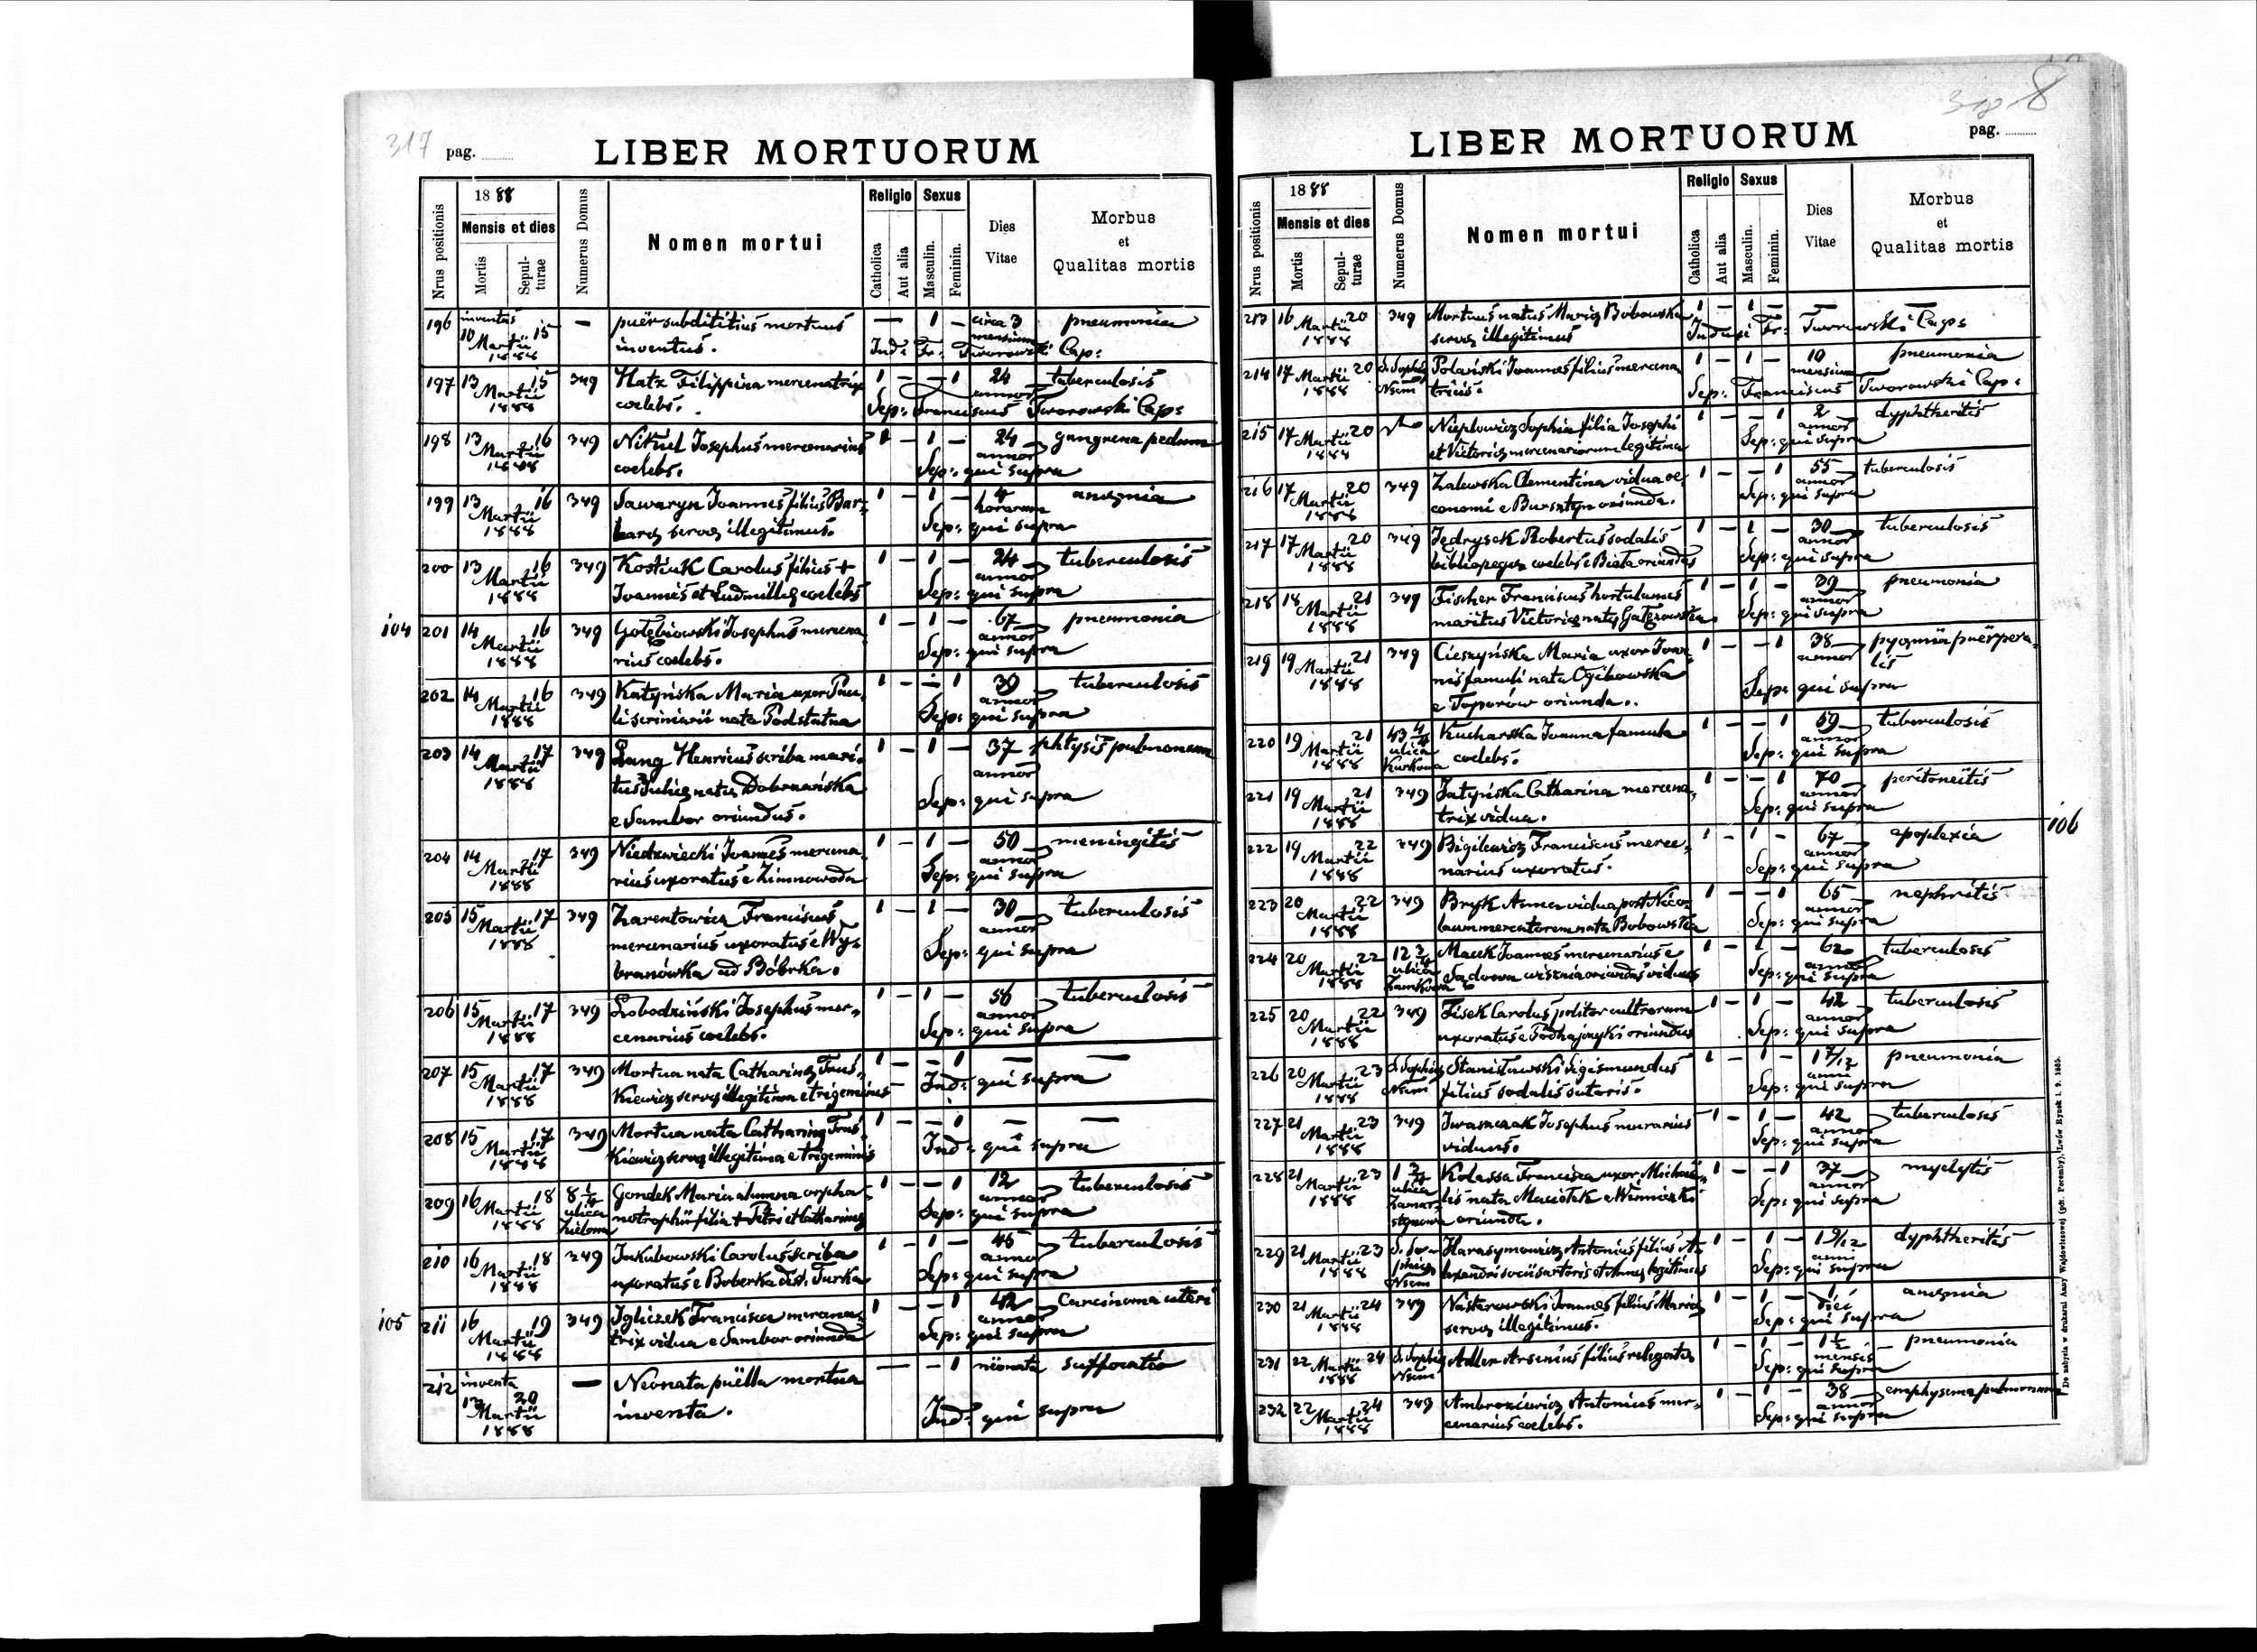 317 pag.
LIBER MORTUORUM
Nrus positionis
1888
Mensis et dies
Mortis
Sepulturae
Numerus Domus
Nomen mortui
Religio
Catholica
Aut alia
Sexus
Masculin.
Feminin.
Dies Vitae
Morbus et Qualitas mortis
196 inventus 10 15 — puer subdititius mortuus — 1 — circa 3 pneumonia
Martii 1888 inventus. Ind: Fr: mensium Tworowski Cap:
197 13 15 349 Hatz Filippina mercenatrix 1 — — 1 24 tuberculosis
Martii 1888 coelebs. annor Sep: Franciscus Tworowski Cap:
198 13 16 349 Josephus mercenarius 1 — 1 — 24 gangrena pedum
Martii 1888 coelebs. annor Sep: qui supra
199 13 16 349 Sawaryn Joannes filius Bar-
Martii 1888 barae servae illegitimus. 1 — 1 — 4 horarum anaemia
Sep: qui supra
200 13 16 349 Kostiuk Carolus filius + 1 — 1 — 24 tuberculosis
Martii 1888 Joannis et Ludmillae coelebs annor Sep: qui supra
104 201 14 16 349 Gołębiowski Josephus mercena- 1 — 1 — 67 pneumonia
Martii 1888 rius coelebs. annor Sep: qui supra
202 14 16 349 Katyńska Maria uxor Pau- 1 — — 1 39 tuberculosis
Martii 1888 li scriniarii nata Podstatna annor Sep: qui supra
203 14 17 349 Lang Henricus scriba mari- 1 — 1 — 37 phtysis pulmonum
Martii 1888 tus Juliae natae Dobrzańska annor
e Sambor oriundus. Sep: qui supra
204 14 17 349 Niedzwiecki Joannes mercena- 1 — 1 — 50 meningitis
Martii 1888 rius uxoratus e Zimnowoda annor Sep: qui supra
205 15 17 349 Zarentowicz Franciscus 1 — 1 — 30 tuberculosis
Martii 1888 mercenarius uxoratus e Wy- annor
branówka ad Bóbrka. Sep: qui supra
206 15 17 349 Łobodziński Josephus mer- 1 — 1 — 56 tuberculosis
Martii 1888 cenarius coelebs. annor Sep: qui supra
207 15 17 349 Mortua nata Catharinae Truś- 1 — — 1 — —
Martii 1888 kiewicz servae illegitima e trigeminis Ind: qui supra
208 15 17 349 Mortua nata Catharinae Truś- 1 — — 1 — —
Martii 1888 kiewicz servae illegitima e trigeminis Ind: qui supra
209 16 18 8 1/4 ulica Zielona Gondek Maria alumna orpha- 1 — — 1 12 tuberculosis
Martii 1888 notrophii filia + Petri et Catharinae annor Sep: qui supra
210 16 18 349 Jakubowski Carolus scriba 1 — 1 — 45 tuberculosis
Martii 1888 uxoratus e Boberka dist. Turka annor Sep: qui supra
105 211 16 19 349 Igliczek Francisca mercena- 1 — — 1 42 carcinoma uteri
Martii 1888 trix vidua e Sambor oriunda annor Sep: qui supra
212 inventa 20 — Neonata puella mortua — — 1 neonata suffocatio
Martii 1888 inventa. Ind: qui supra
8
LIBER MORTUORUM
pag.
Nrus positionis
1888
Mensis et dies
Mortis
Sepulturae
Numerus Domus
Nomen mortui
Religio
Catholica
Aut alia
Sexus
Masculin.
Feminin.
Dies Vitae
Morbus et Qualitas mortis
213 16 20 349 Mortuus natus Mariae Bobowska 1 — 1 — — —
Martii 1888 servae illegitimus Fr: Tworowski Cap:
214 17 20 S. Sophia Polański Joannes filius mercena- 1 — 1 — 10 pneumonia
Martii 1888 tricis. mensium Sep: Franciscus Tworowski Cap:
215 17 20 Sophia filia Josephi 1 — — 1 2 dyphtheritis
Martii 1888 et Victoriae mercenariorum legitima annor Sep: qui supra
216 17 20 349 Zalewska Clementina vidua oe- 1 — — 1 55 tuberculosis
Martii 1888 conomi e Bursztyn oriunda. annor Sep: qui supra
217 17 20 349 Jędrysek Robertus sodalis 1 — 1 — 30 tuberculosis
Martii 1888 bibliopegus coelebs e Biała oriundus annor Sep: qui supra
218 18 21 349 Fischer Franciscus hortulanus 1 — 1 — 39 pneumonia
Martii 1888 maritus Victoriae natae annor Sep: qui supra
219 19 21 349 Cieszyńska Maria uxor Joan- 1 — — 1 38 pyaemia puerpera-
Martii 1888 nis famuli nata Ogibowska annor lis
e Toporów oriunda. Sep: qui supra
220 19 21 43 4/4 ulica Kurkowa Kucharska Joanna famula 1 — — 1 59 tuberculosis
Martii 1888 coelebs. annor Sep: qui supra
221 19 21 349 Catharina mercena- 1 — — 1 70 peritoneitis
Martii 1888 trix vidua. annor Sep: qui supra
222 19 22 349 Bigilewicz Franciscus merce- 1 — 1 — 67 apoplexia 106
Martii 1888 narius uxoratus. annor Sep: qui supra
223 20 22 349 Bryk Anna vidua post Nico- 1 — — 1 65 nephritis
Martii 1888 laum mercatorem nata Bobowska annor Sep: qui supra
224 20 22 12 2/4 ulica Zamkowa Macek Joannes mercenarius e 1 — 1 — 62 tuberculosis
Martii 1888 Sądowa wisznia oriundus viduus annor Sep: qui supra
225 20 22 349 Fisek Carolus politor cultrorum 1 — 1 — 42 tuberculosis
Martii 1888 uxoratus e Podhajczyki oriundus annor Sep: qui supra
226 20 23 S. Sophia Stanisławski Sigismundus 1 — 1 — 1 7/12 pneumonia
Martii 1888 filius sodalis sutoris. anni Sep: qui supra
227 21 23 349 Iwaszczak Josephus murarius 1 — 1 — 42 tuberculosis
Martii 1888 viduus. annor Sep: qui supra
228 21 23 1 2/4 ulica Zamarstynowa Kolassa Francisca uxor Michae- 1 — — 1 37 myelytis
Martii 1888 lis nata e Winniczki annor
oriunda. Sep: qui supra
229 21 23 S. Sophia Harasymowicz Antonius filius A- 1 — 1 — 1 9/12 dyphtheritis
Martii 1888 lexandri socii sartoris et Annae legitimus anni Sep: qui supra
230 21 24 349 Nastarowski Joannes filius Mariae 1 — 1 — 1 anaemia
Martii 1888 servae illegitimus. diei Sep: qui supra
231 22 24 S. Sophia Adler Arsenius filius relegatus 1 — 1 — 1 1/2 pneumonia
Martii 1888 mensis Sep: qui supra
232 22 24 349 Ambroziewicz Antonius mer- 1 — 1 — 38 emphysema pulmonum
Martii 1888 cenarius coelebs. annor Sep: qui supra
De nabycia w drukarni Anny Wajdowiczowej (pdt. Poremby), Lwów Rynek l. 9. 1885.